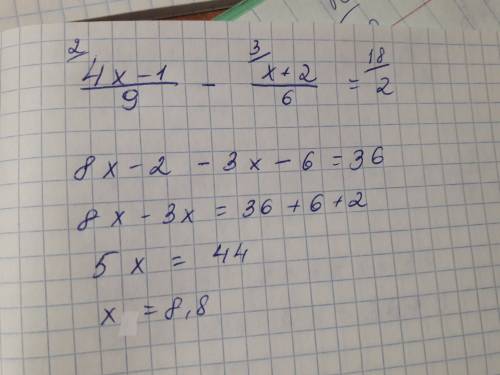 2/ 3/ 18/
4x-1/9 - x+2/6 = 2
8x-2 -3x-6=36
8x-3x=36+6+2
5x = 44
x =8,8